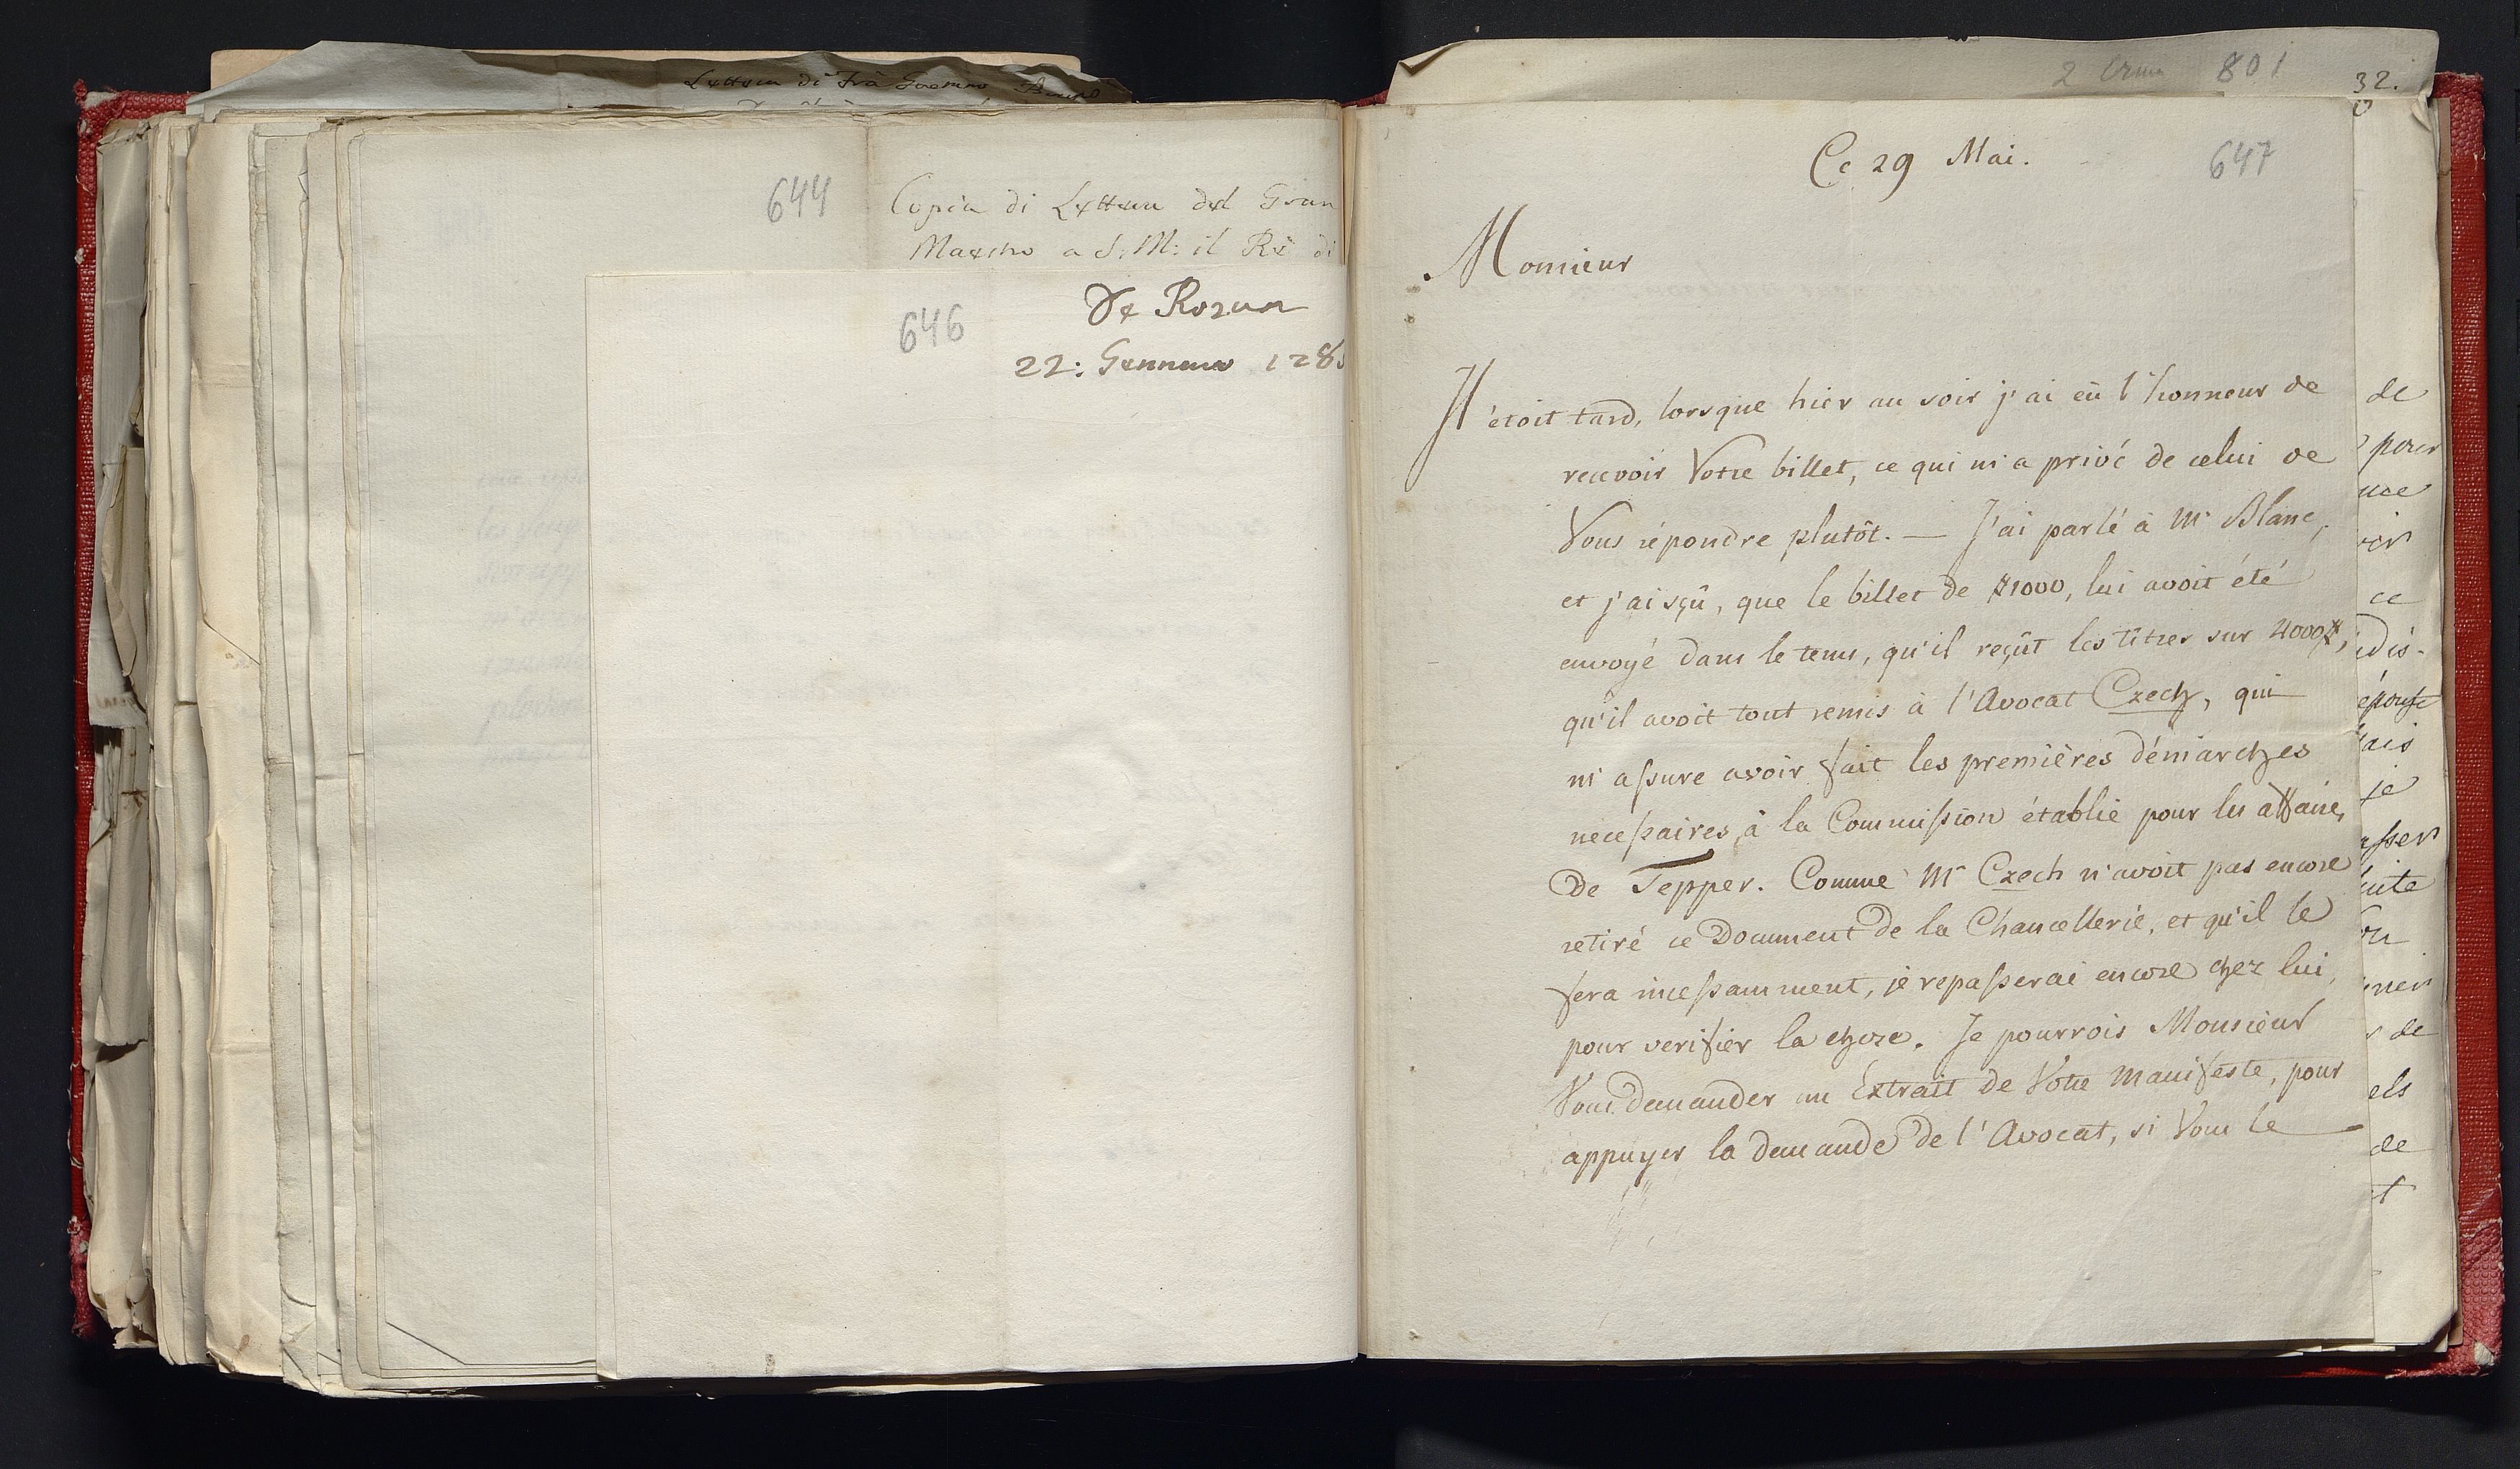 Lettera di Frà
644
Copia di Lettera del Gran
Maestro a S: M: il Rè di
646
De Rozan
22: Gennaro 178
2 801
32.
Ce 29 Mai.
647
Monsieur
Il étoit tard, lorsque hier au soir j'ai eû l'honneur de
recevoir Votre billet, ce qui m'a privé de celui de
Vous répondre plutôt. — J'ai parlé à Mr Blanc,
et j'ai sçû, que le billet de #1000, lui avoit été
envoyé dans le tems, qu'il reçût les titres sur 4000#,
qu'il avoit tout remis à l'Avocat Czech, qui
m'assure avoir fait les premières démarches
necessaires, à la Commission établie pour les affaires
De Tepper. Comme Mr Czech n'avoit pas encore
retiré ce Document de la Chancellerie, et qu'il le
fera incessamment, je repasserai encore chez lui,
pour verifier la chose. Je pourrois Monsieur
Vous demander un Extrait de Votre Manifeste, pour
appuyer la demande de l'Avocat, si Vous le
de
pour
ce
je
de
els
de
t